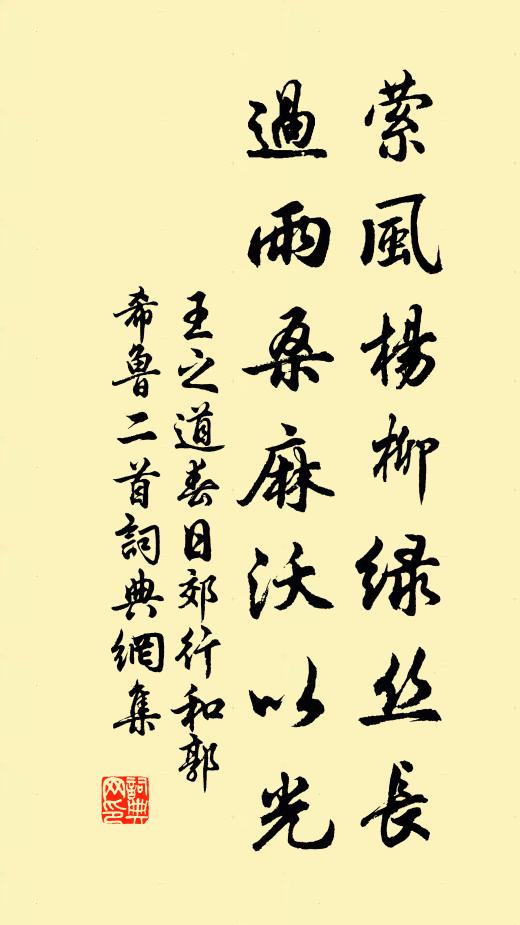 萦風楊柳绿丝長
過雨桑麻沃以光
王之道春日郊行和郭
希魯二首詞典網集
詞典網印